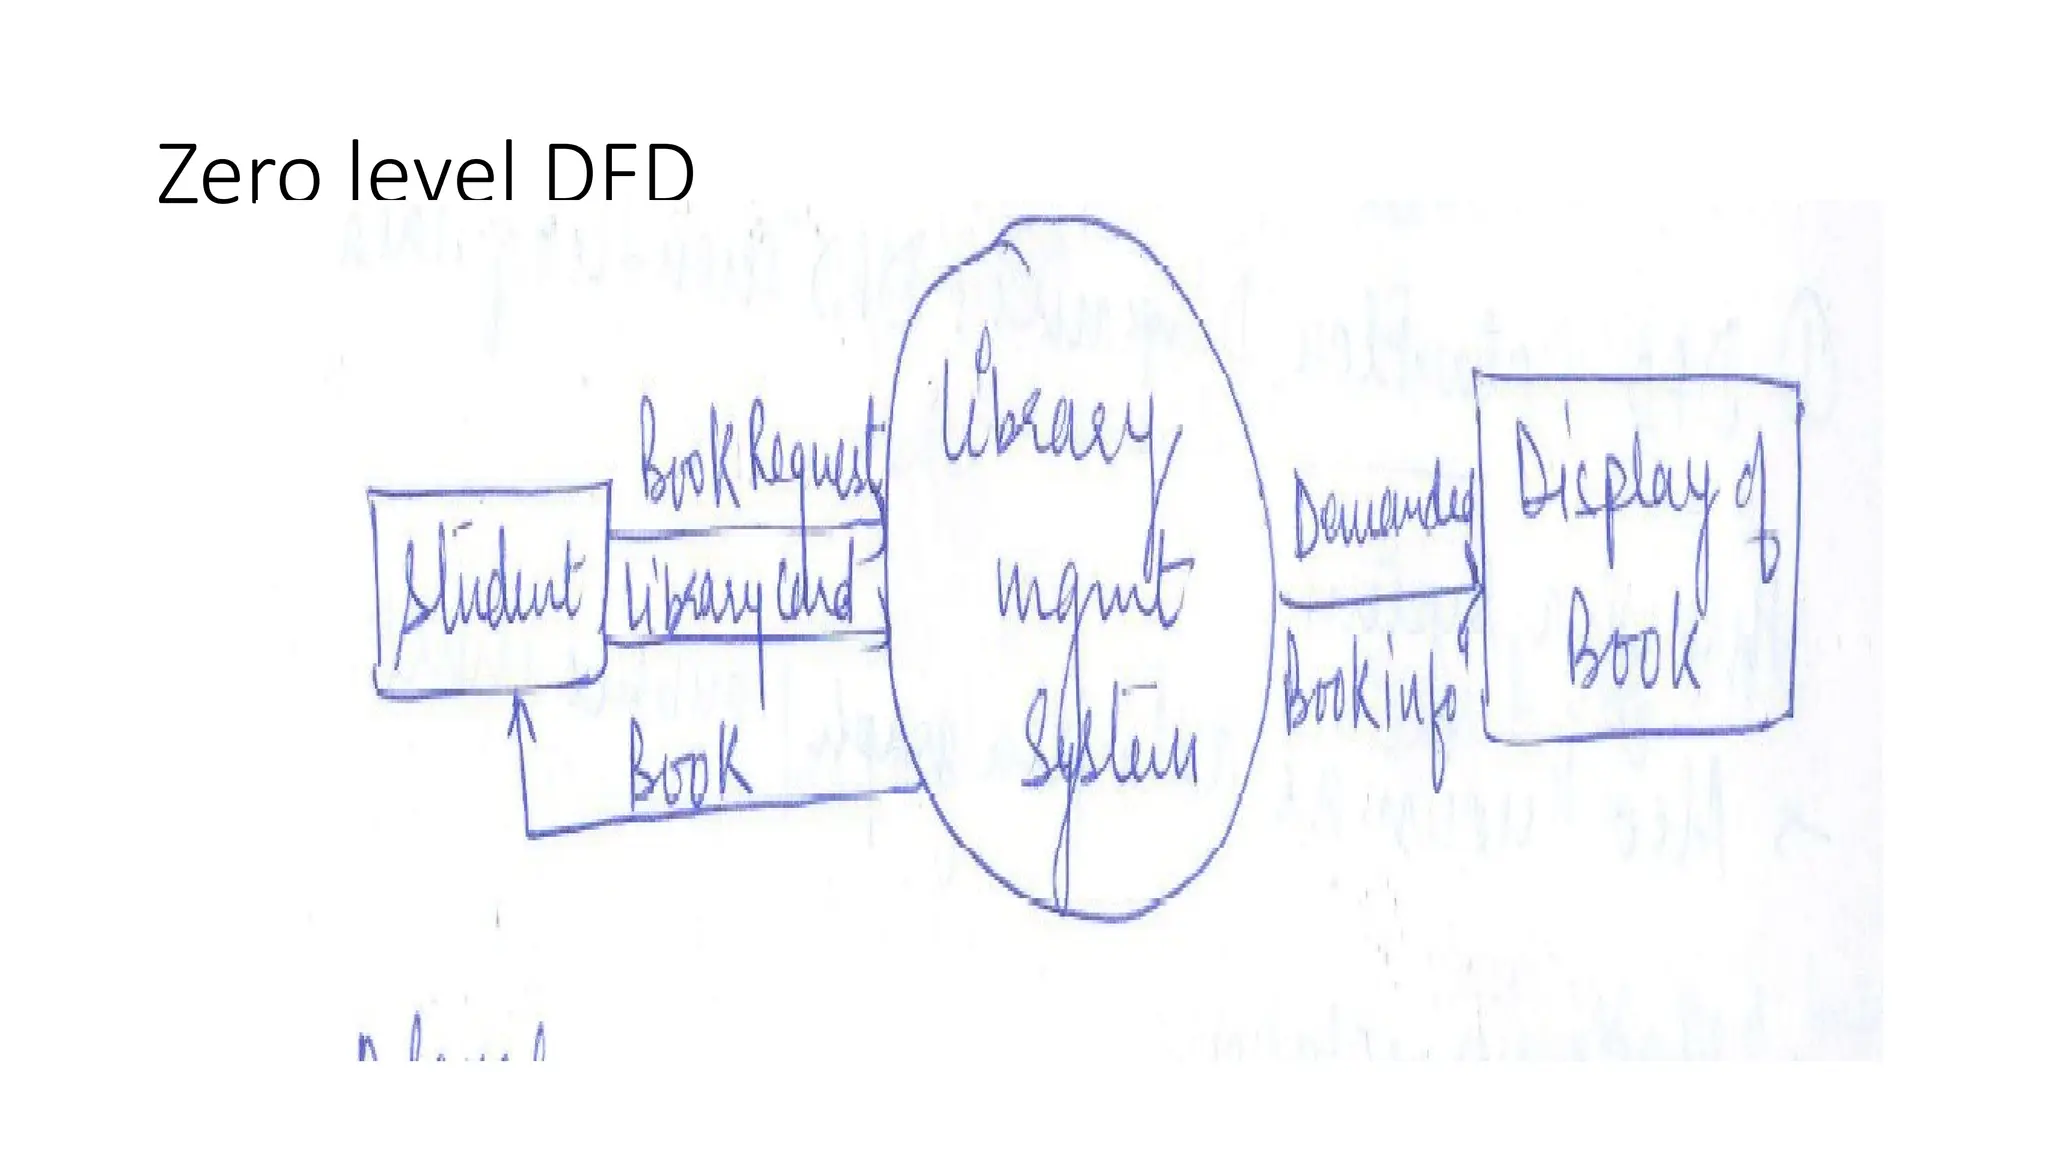 Zero level DFD
Library
mgmt
System
Book Request
Library Card
Student
Book
Demanded
Book info
Display of
Book